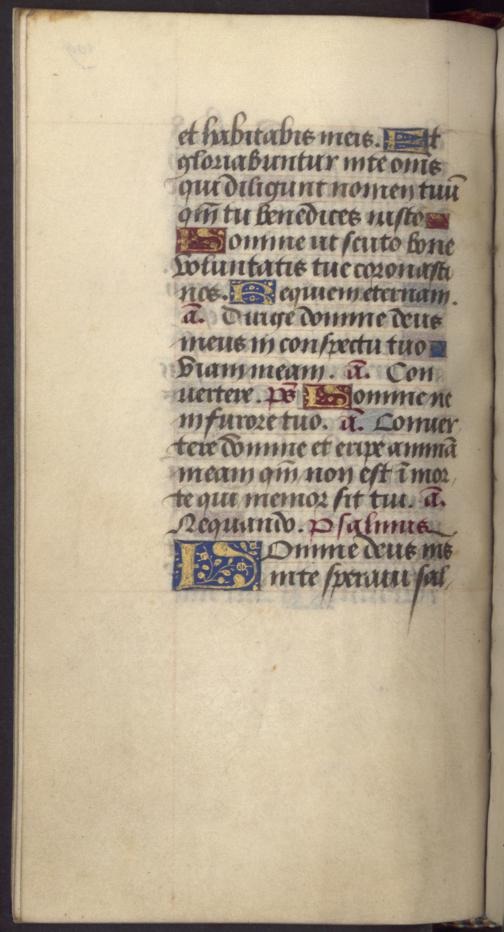 et habitabis meis. Et
gloriabuntur in te om̄s
qui diligunt nomen tuū
qm̄ tu benedices iusto
Domine ut scuto bone
voluntatis tue coronasti
nos. Requiem eternam.
a. Dirige domine deus
meus in conspectu tuo
viam meam. a. Con
uertere. ps Domine ne
in furore tuo. a. Conuer
tere domine et eripe animā
meam qm̄ non est ī mor
te qui memor sit tui. a.
Nequando. Psalmus
Domine deus ms
in te speraui sal